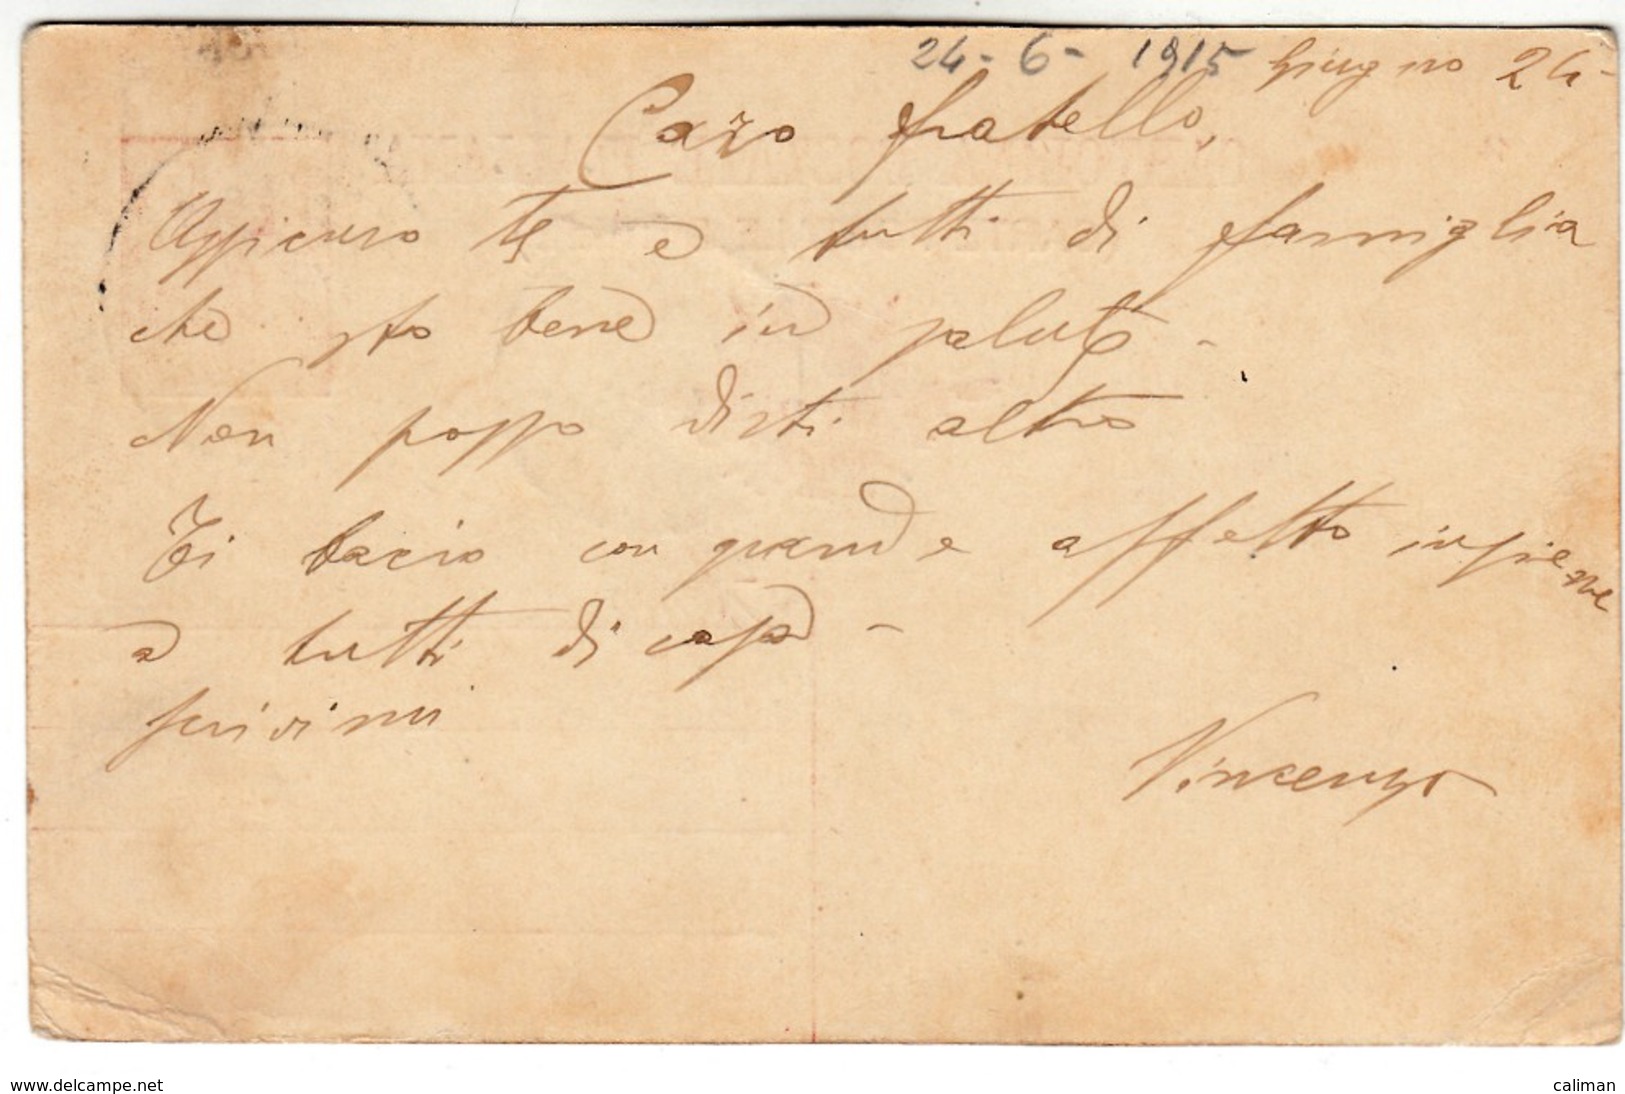 24-6-1915 Giugno 24-
Caro fratello,
Assicuro te e tutti di famiglia
che sto bene in salute -
Non posso dirti altro
Ti bacio con grande affetto insieme
a tutti di casa -
scrivimi
Vincenzo
www.delcampe.net
caliman